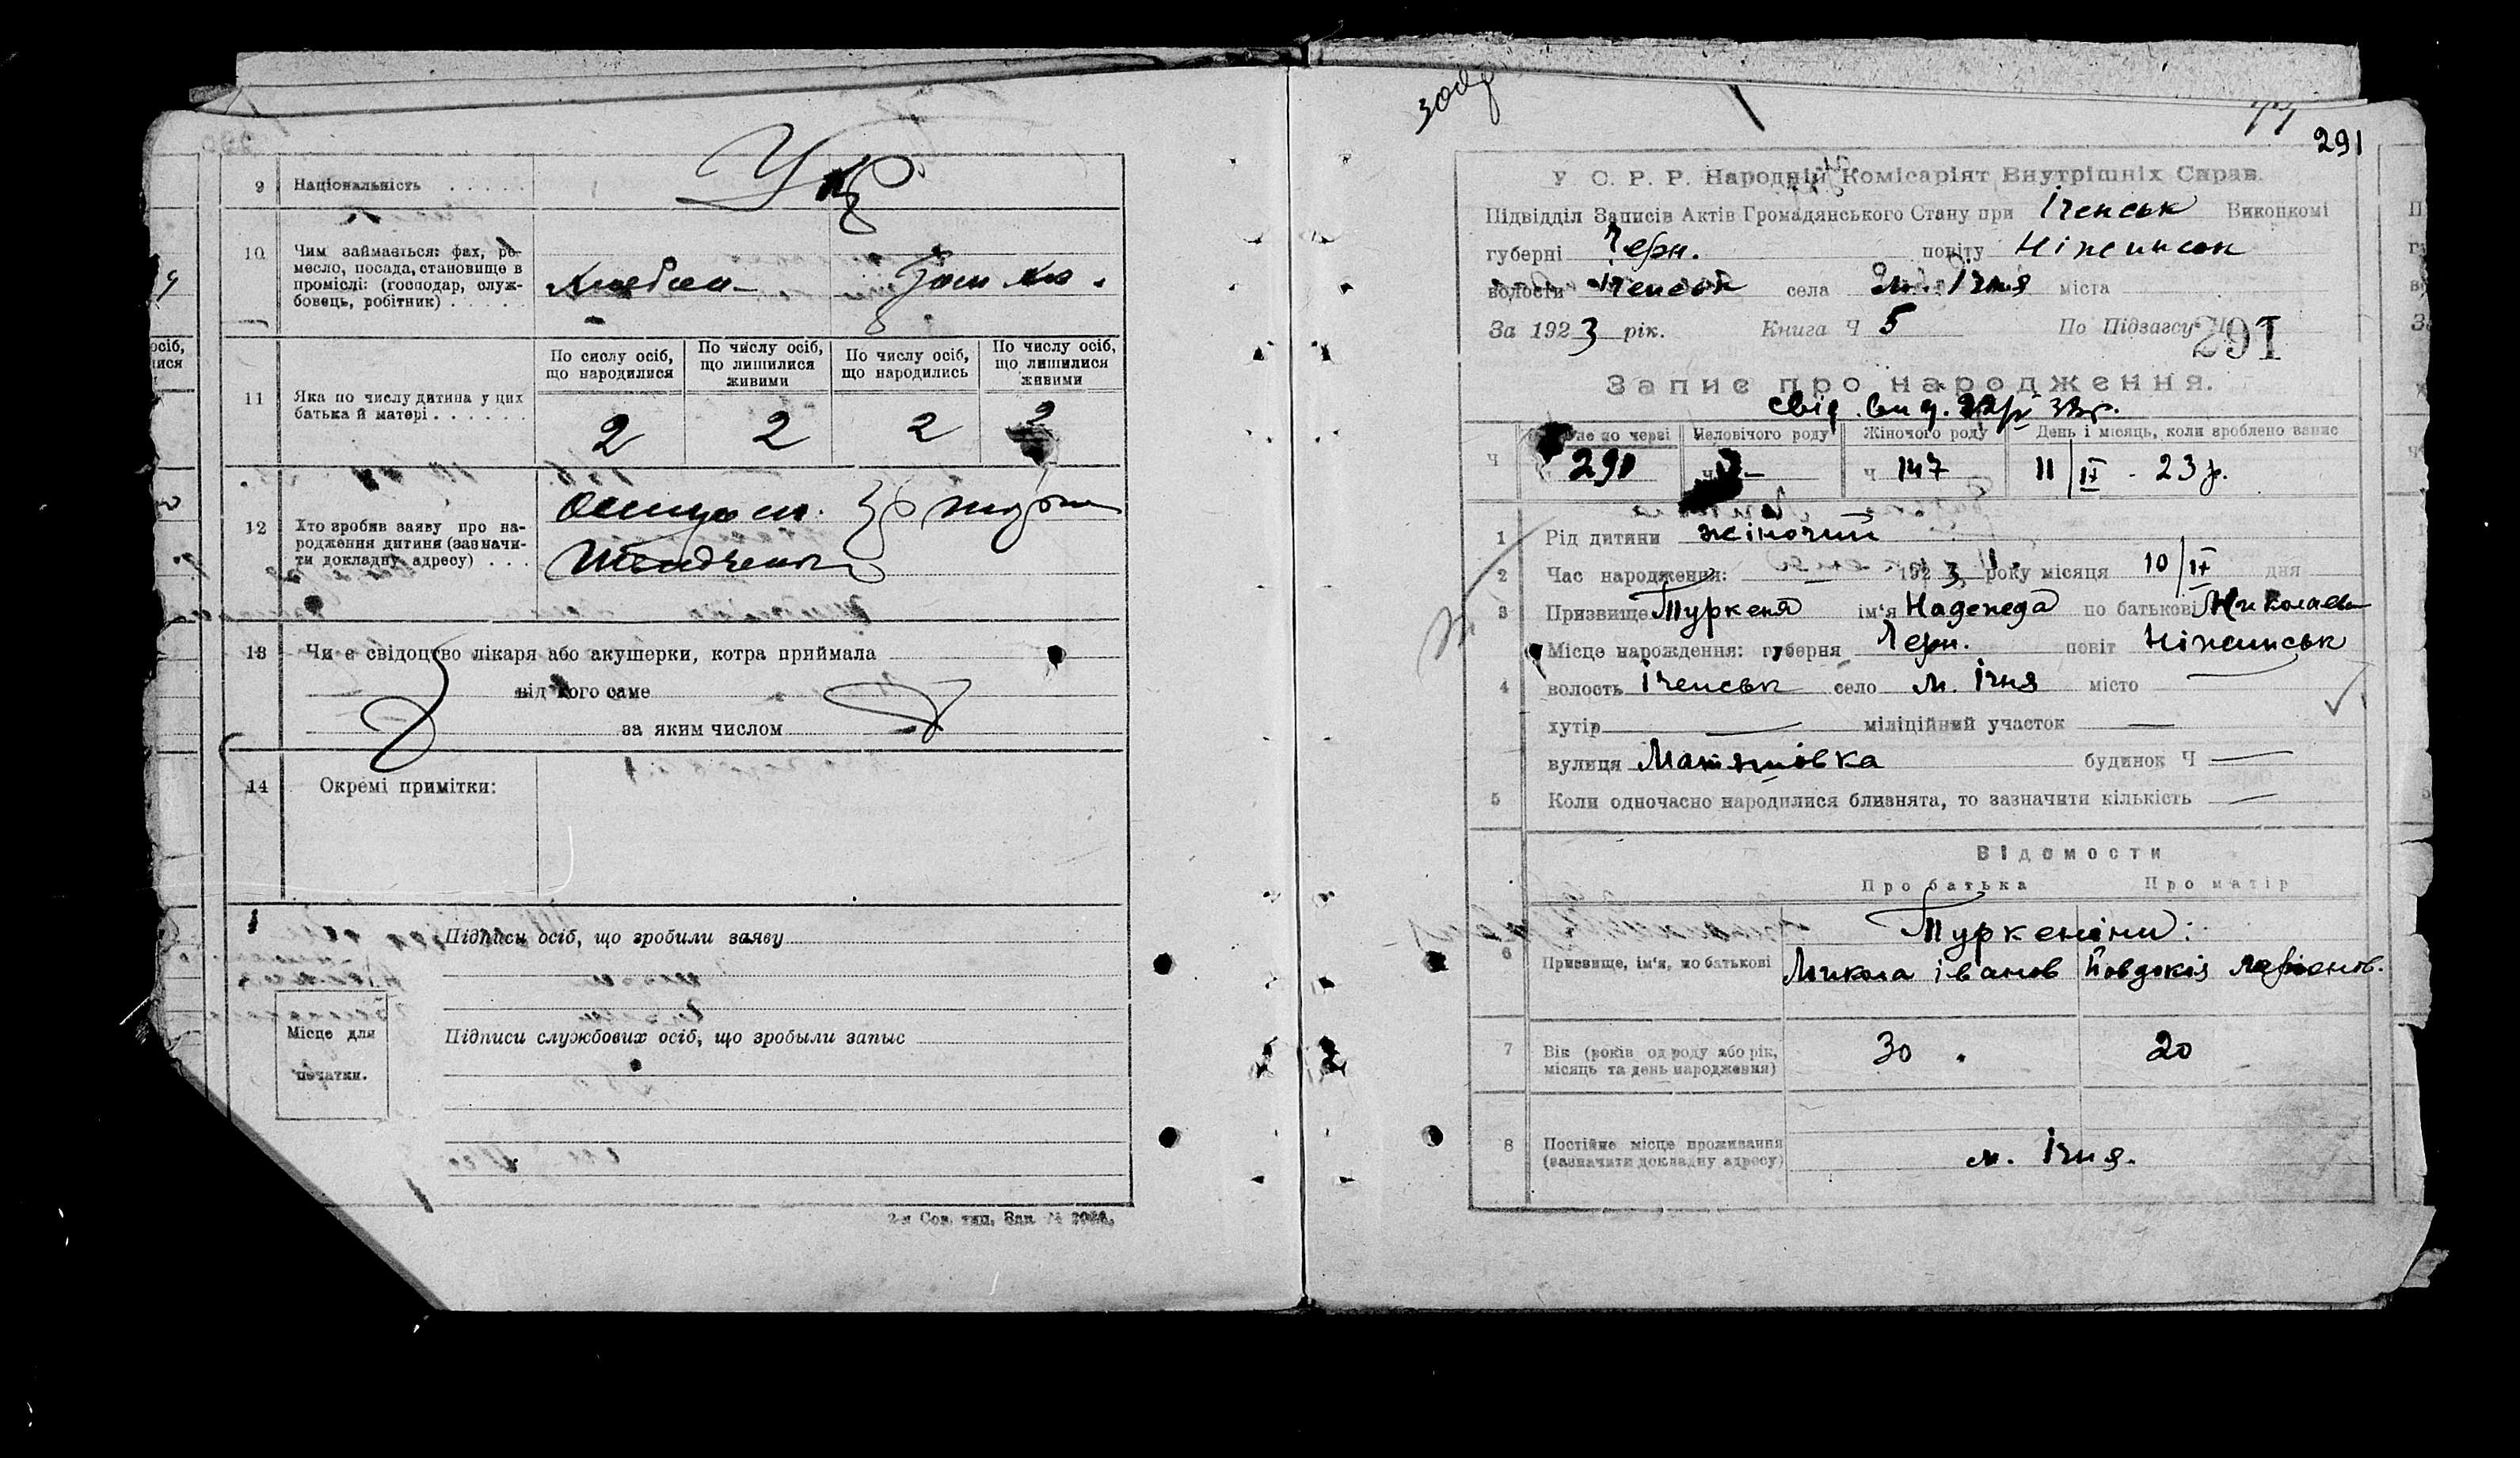 9 Національність . . . . .
Укр
10 Чим займається: фах, ре-
месло, посада, становище в
проміслі: (господар, служ-
бовець, робітник) . . . . .
По сислу осіб, що народилися
По числу осіб, що лишилися живими
По числу осіб, що народились
По числу осіб, що лишилися живими
11 Яка по числу дитина у цих
батька й матері . . . . . . .
2 2 2 2
12 Хто зробив заяву про на-
родження дитини (зазначи-
ти докладну адресу) . . .
13 Чи є свідоцтво лікаря або акушерки, котра приймала
від кого саме
за яким числом
14 Окремі примітки:
Підписи осіб, що зробили заяву
Місце для
печатки.
Підписи службових осіб, що зробыли запыс
2-я Сов. тип. Зак. №
291
У. С. Р. Р. Народній Комісаріят Внутрішніх Справ.
Підвідділ Записів Актів Громадянського Стану при Іченськ Виконкомі
губерні Черн. повіту Ніженськ
волости Іченськ села м. Ічня міста
За 1923 рік. Книга Ч 5 По Підзагсу Ч 291
Запис про народження.
свід. вид.
не по черзі Человічого роду Жіночого роду День і місяць, коли зроблено запис
Ч 291 ч — ч 147 11/IV - 23 р.
1 Рід дитини жіночий
2 Час народження: — 1923 року місяця 10/IV дня
3 Призвище Туркеня ім'я Надежда по батькові Николаев
4 Місце нарождення: губерня Черн. повіт Ніженськ
волость Іченськ село м. Ічня місто —
хутір — міліційний участок —
вулиця Матяшовка будинок Ч —
5 Коли одночасно народилися близнята, то зазначити кількість —
Відомости
Про батька Про матір
Туркеніни:
6 Призвище, ім'я, по батькові Микола іванов Йовдокія
7 Вік (років од роду або рік,
місяць та день народження) 30. 20
8 Постійне місце проживання
(зазначити докладну адресу) м. Ічня.